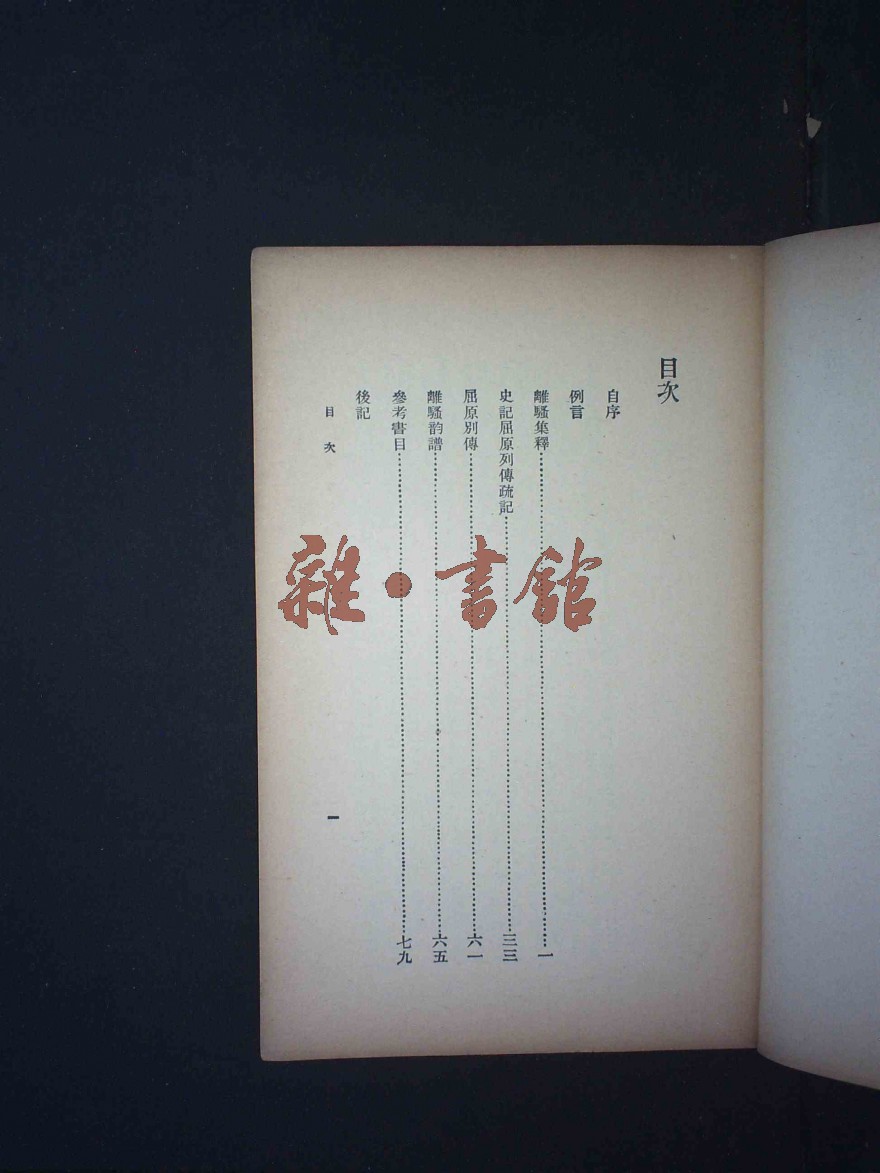 目次
自序
例言
離騷集釋……一
史記屈原列傳疏記……三三
屈原別傳……六一
離騷韵譜……六五
參考書目……七九
後記
目次
一
雜·書館